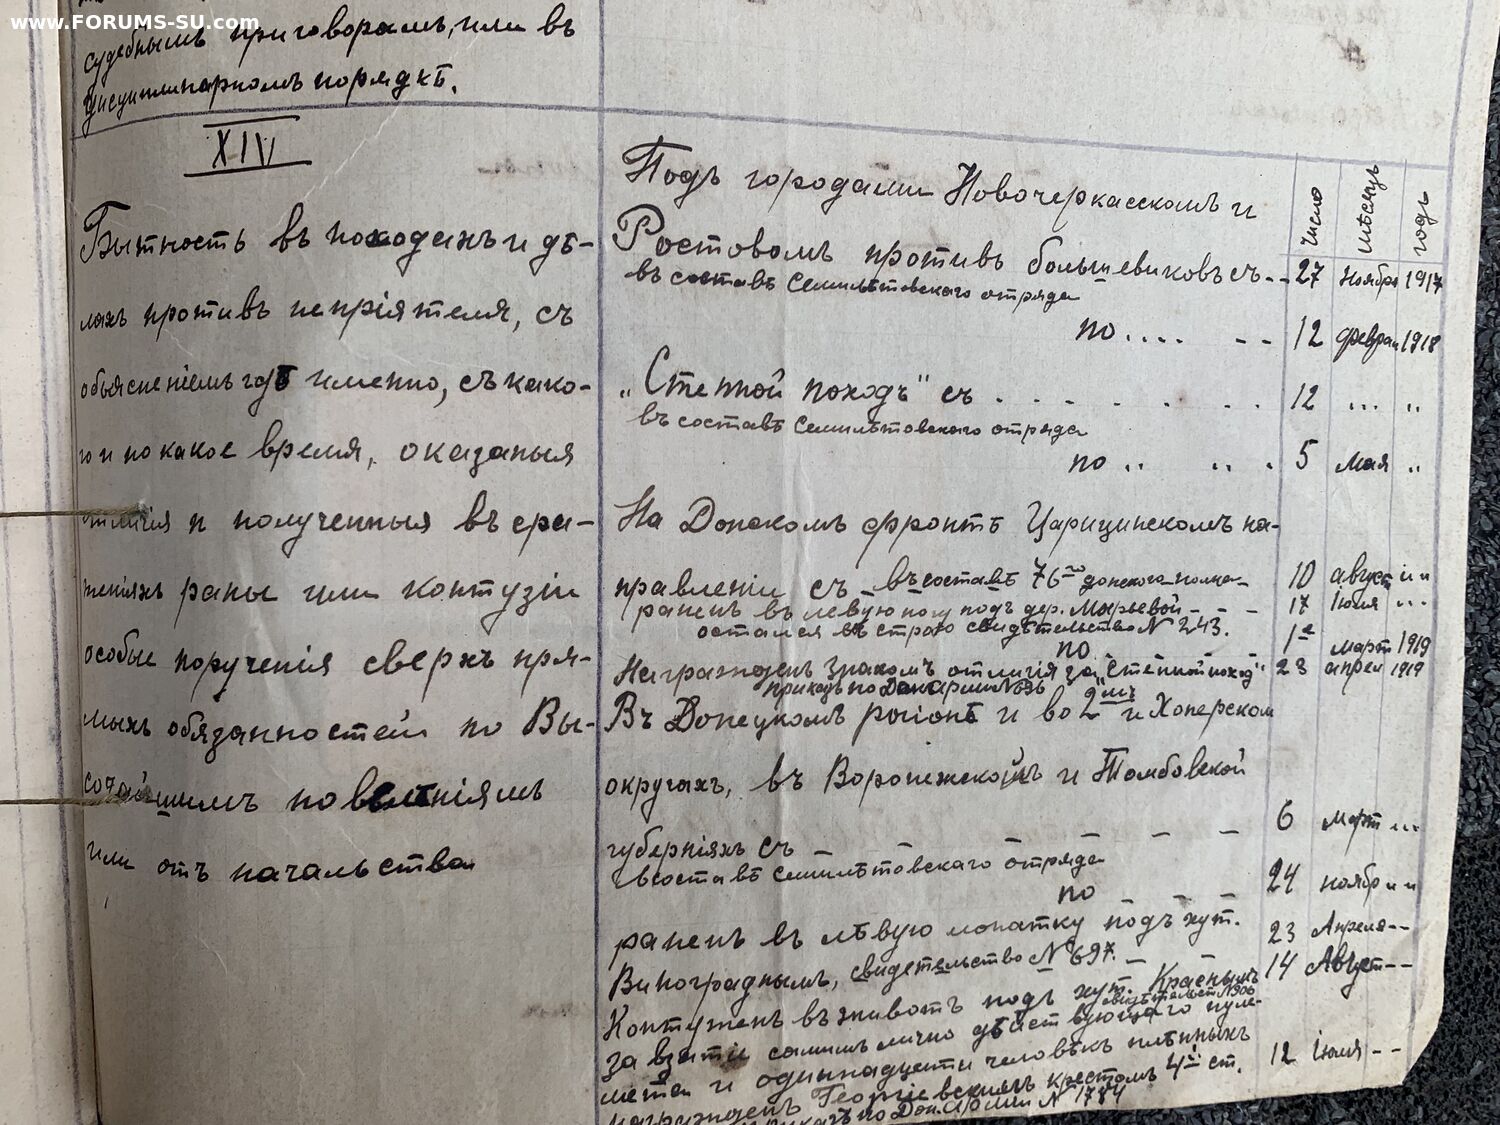 www.FORUMS-SU.com
судебнымъ приговорамъ, или въ
дисциплинарномъ порядкѣ.
XIV
Бытность въ походахъ и дѣ-
лахъ противъ непріятеля, съ
объясненіемъ гдѣ именно, съ како-
го и по какое время, оказаныя
отличія и полученныя въ сра-
женіяхъ раны или контузіи
особые порученія сверхъ пря-
мыхъ обязанностей по Вы-
сочайшимъ повелѣніямъ
или отъ начальства
число мѣсяцъ годъ
Подъ городами Новочеркасскомъ и
Ростовомъ противъ большевиковъ съ-- 27 Ноября 1917
въ составѣ Семилѣтовскаго отряда
по.... -- 12 феврал 1918
„Степной походъ" съ . . . . . . 12 ... ..
въ составѣ Семилѣтовскаго отряда
по .. .. . 5 мая ..
На Донскомъ фронтѣ Царицинскомъ на-
правленіи съ въ составѣ 76го донского полка 10 август ..
раненъ въ левую ногу под дер. Марьевой - - - 17 Іюля ...
остался въ строю свидѣтельство N 243.
по 1е март 1919
Награжденъ знакомъ отличія за „Степной поход" 23 апрел 1919
приказъ по Донармии №
Въ Донецкомъ районѣ и во 2мъ и Хоперском
округахъ, въ Воронежской и Тамбовской
губерніяхъ съ - - - - - - 6 март ...
въ составѣ Семилѣтовскаго отряда
по - - - 24 ноябр ..
раненъ в лѣвую лопатку подъ хут. 23 Апреля--
Виноградным, свидетельство № 697. - - 14 Август--
Контуженъ въ животъ подъ хут. Красным
свидѣтельст N 906
за взятіе самимъ лично дѣйствующаго пуле-
мета и одиннадцати человѣкъ плѣнныхъ 12 Іюля --
награжденъ Георгіевскимъ крестомъ 4й ст.
приказъ по Дон. Арміи N 1784